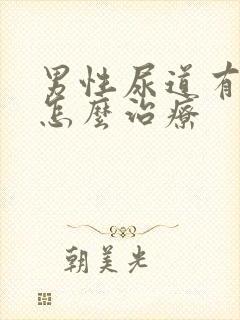 男性尿道有
怎麼治療
朝美光